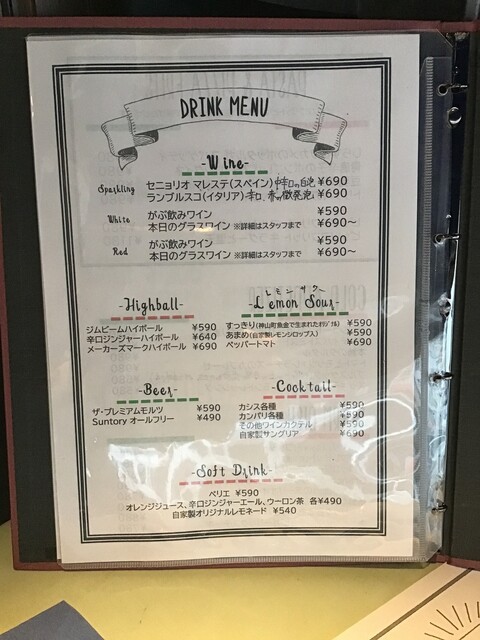 DRINK MENU
-Wine-
Sparkling セニョリオ マレステ(スペイン) 中辛口の白泡 ¥690
ランブルスコ(イタリア) 辛口 赤の微発泡 ¥690
White がぶ飲みワイン ¥590
本日のグラスワイン ※詳細はスタッフまで ¥690～
Red がぶ飲みワイン ¥590
本日のグラスワイン ※詳細はスタッフまで ¥690～
-Highball-
ジムビームハイボール ¥590
辛口ジンジャーハイボール ¥640
メーカーズマークハイボール ¥690
レモンサワー
-Lemon Sour-
すっきり(神山町魚金で生まれたオリジナル) ¥590
あまめ(自家製レモンシロップ入) ¥590
ペッパートマト ¥690
-Beer-
ザ・プレミアムモルツ ¥590
Suntory オールフリー ¥490
-Cocktail-
カシス各種 ¥590
カンパリ各種 ¥590
その他ワインカクテル ¥590
自家製サングリア ¥690
-Soft Drink-
ペリエ ¥590
オレンジジュース、辛口ジンジャーエール、ウーロン茶 各¥490
自家製オリジナルレモネード ¥540